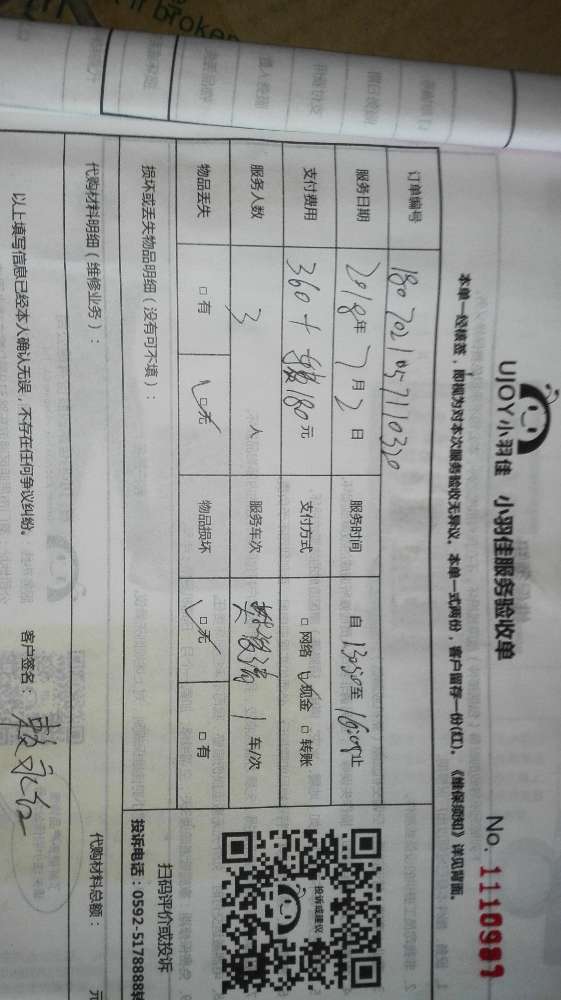 UJOY小羽佳 小羽佳服务验收单
No. 1110987
本单一经核签，即视为对本次服务验收无异议。本单一式两份，客户留存一份(红)。《维保须知》详见背面。
订单编号 1807021057110320
服务日期 2018年 7月 2日 服务时间 自 13:30至 16:00止
支付费用 360+ 180元 支付方式 □ 网络 ☑ 现金 □ 转账
服务人数 3 人 服务车次 1 车/次
物品丢失 □ 有 ☑ 无 物品损坏 ☑ 无 □ 有
投诉或建议
扫码评价或投诉
投诉电话：0592-5178888转
损坏或丢失物品明细（没有可不填）：
代购材料明细（维修业务）： 代购材料总额： 元
以上填写信息已经本人确认无误，不存在任何争议纠纷。 客户签名：